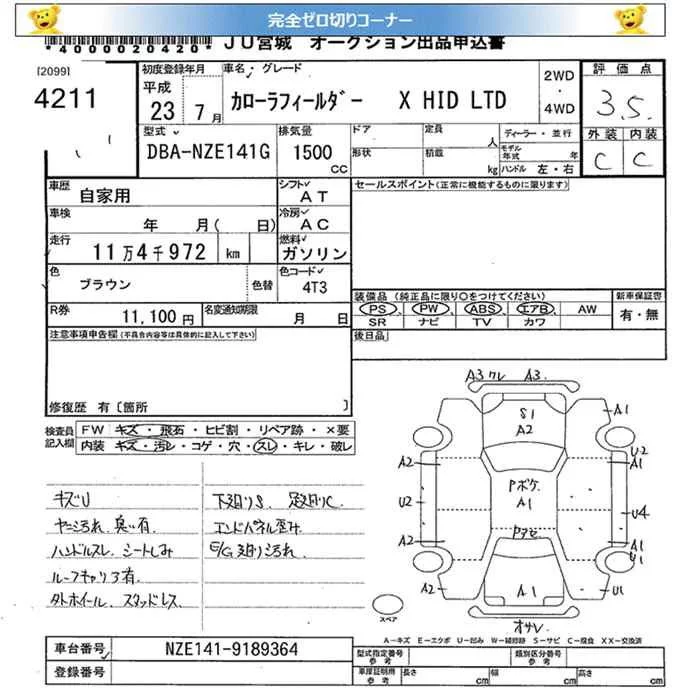 完全ゼロ切りコーナー
*4000020420* JU宮城 オークション出品申込書
[2099]
4211
初度登録年月 車名・グレード
平成 23 7月 カローラフィールダー X HID LTD
2WD・4WD
評価点
3.5
外装 内装
C C
型式 DBA-NZE141G
排気量 1500 CC
ドア 形状
定員 人
積載 kg
ディーラー・並行
モデル年式 年
ハンドル 左・右
車歴 自家用
シフト AT
セールスポイント(正常に機能するものに限ります)
車検 年 月( 日)
冷房 AC
走行 11万4千972 km
燃料 ガソリン
色 ブラウン 色替
色コード 4T3
装備品(純正品に限り○をつけてください)
PS PW ABS エアB AW
SR ナビ TV カワ
新車保証書
有・無
R券 11,100円
名変通知期限 月 日
後日品
注意事項申告欄(不具合内容等は具体的に記入して下さい)
修復歴 有〔箇所 〕
検査員記入欄
FW キズ・飛石・ヒビ割・リペア跡・×要
内装 キズ・汚レ・コゲ・穴・スレ・キレ・破レ
キズU
ヤニ汚れ、臭い有
ハンドルスレ、シートしみ
ルーフキャリア有
タトホイール、スタッドレス
下廻りS 足廻りC
エンドパネル歪み
E/G廻り汚れ
A3 ワレ A3
S1
A2
A1
U2
A1
A2
U2
A2
A2
Pボケ
A1
U4
A1
U1
U1
A1
スペア
A-キズ E-エクボ U-凹み W-補修跡 S-サビ C-腐食 XX-交換済
車台番号 NZE141-9189364
登録番号
型式指定番号 参考
類別区分番号 参考
車庫証明用 参考 長さ cm 幅 cm 高さ cm